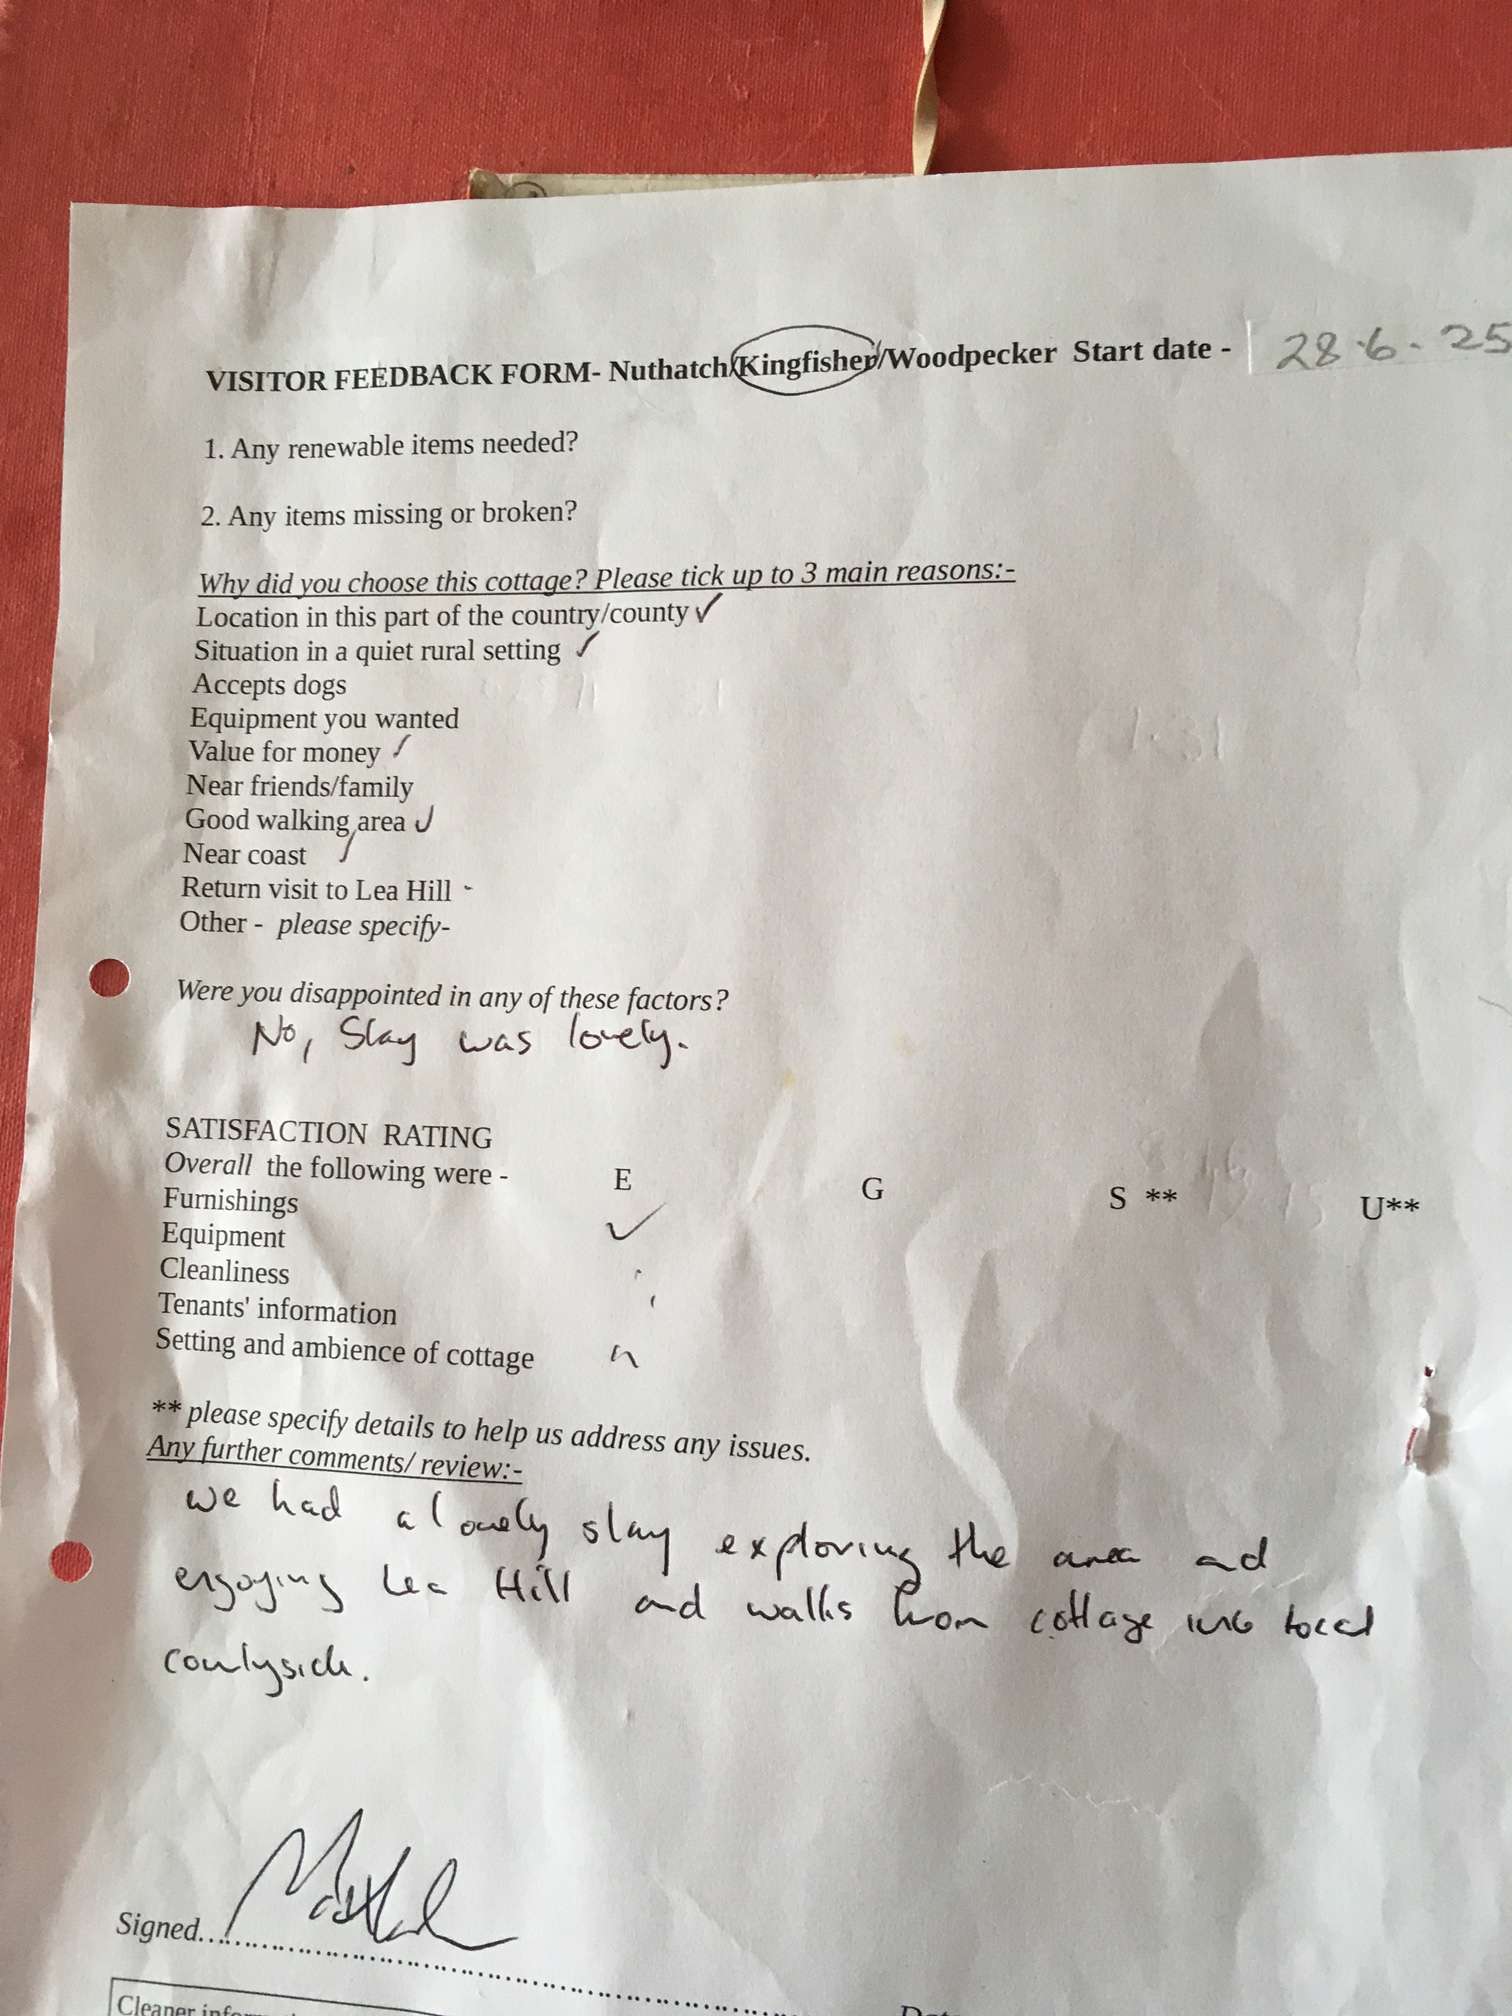 VISITOR FEEDBACK FORM- Nuthatch/Kingfisher/Woodpecker Start date - 28.6.25
1. Any renewable items needed?
2. Any items missing or broken?
Why did you choose this cottage? Please tick up to 3 main reasons:-
Location in this part of the country/county ✓
Situation in a quiet rural setting ✓
Accepts dogs
Equipment you wanted
Value for money ✓
Near friends/family
Good walking area ✓
Near coast ✓
Return visit to Lea Hill -
Other - please specify-
Were you disappointed in any of these factors?
No, Stay was lovely.
SATISFACTION RATING
Overall the following were - E G S ** U**
Furnishings
Equipment ✓
Cleanliness
Tenants' information
Setting and ambience of cottage
** please specify details to help us address any issues.
Any further comments/ review:-
we had a lovely stay exploring the area and
enjoying Lea Hill and walks from cottage into local
countyside.
Signed
Cleaner